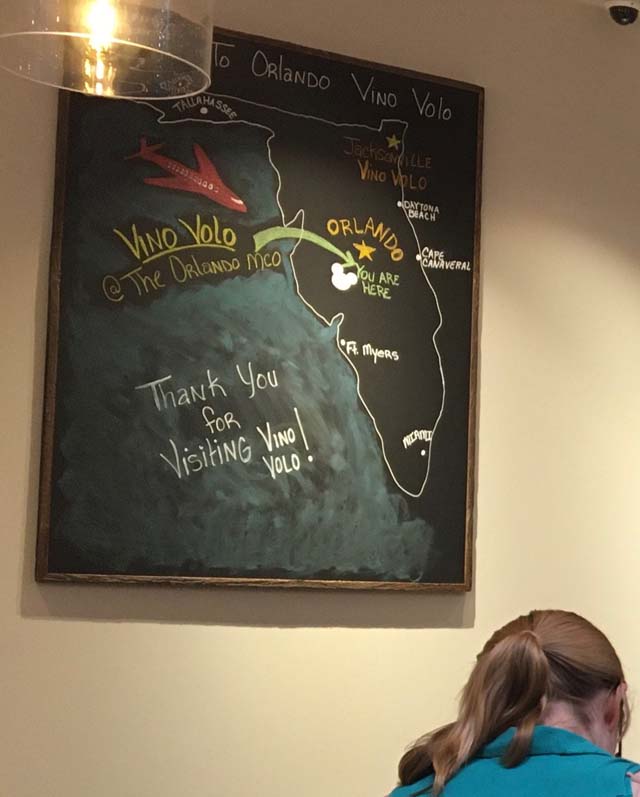 To Orlando Vino Volo
Tallahassee
Jacksonville
Vino Volo
Daytona
Beach
Vino Volo
@ The Orlando MCO
Orlando
Cape
Canaveral
You Are
Here
Ft. Myers
Thank You
for
Visiting Vino
Volo!
Miami